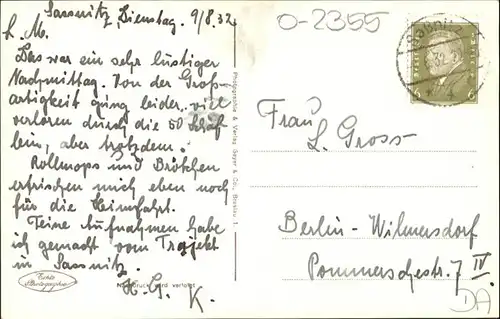 Sassnitz, Dienstag. 9/8.32
L. M.
Das war ein sehr lustiger
Nachmittag. Von der Groß-
artigkeit ging leider viel
verloren durch die 50 Schäf
lein, aber trotzdem.
Rollmops und Brötchen
erfrischen mich eben noch
für die Heimfahrt.
Feine Aufnahmen habe
ich gemacht vom Trajekt
in Sassnitz.
K. G. K.
Echte
Photographie
Nachdruck wird verfolgt
Photographie & Verlag Seyer & Co., Breslau 1
O-2355
6
Frau
L. Gross
Berlin-Wilmersdorf
Pommerschestr. 7 IV.
DA